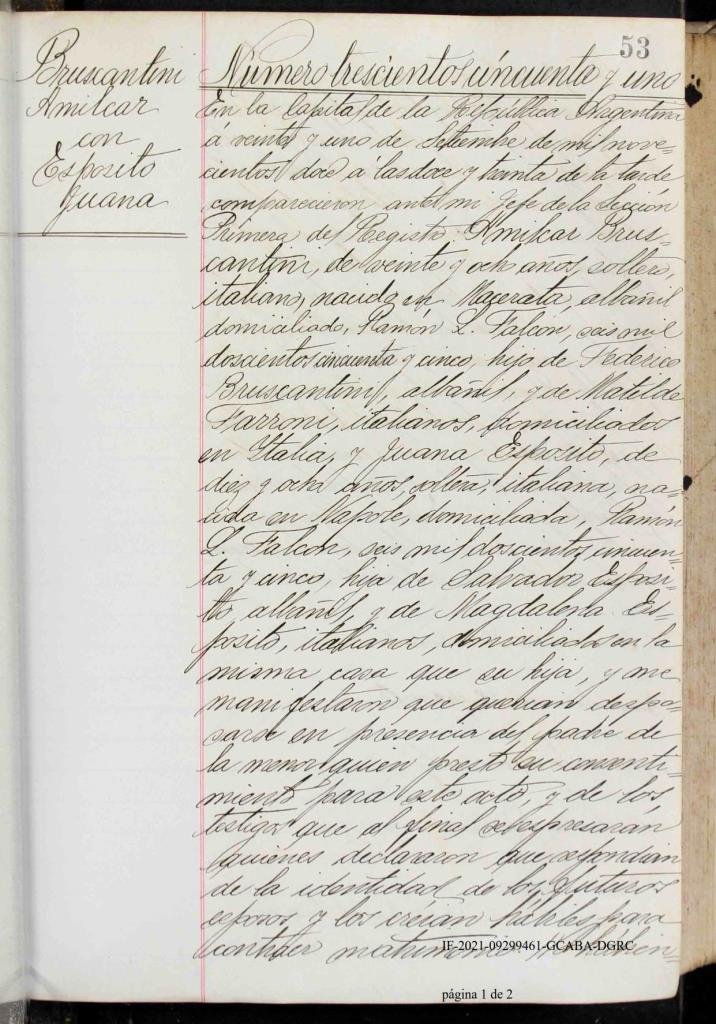 53
Bruscantini
Amilcar
con
Esposito
Juana
Número trescientos cincuenta y uno
En la Capital de la República Argentina
á veinte y uno de Setiembre de mil nove-
cientos doce á las doce y treinta de la tarde
comparecieron ante mi Jefe de la Sección
Primera del Registro Amilcar Brus-
cantini, de veinte y ocho años, soltero,
italiano, nacido en Macerata, albañil
domiciliado, Ramón L. Falcon, seis mil
doscientos cincuenta y cinco, hijo de Federico
Bruscantini, albañil, y de Matilde
Farroni, italianos, domiciliados
en Italia, y Juana Esposito, de
diez y ocho años, soltera, italiana, na-
cida en Napole, domiciliada, Ramón
L. Falcon, seis mil doscientos cincuen-
ta y cinco, hija de Salvador Esposi-
to albañil y de Magdalena Es-
posito, italianos, domiciliados en la
misma casa que su hija, y me
manifestaron que querian despo-
sarse en presencia del padre de
la menor quien prestó su consenti-
miento para este acto, y de los
testigos que al final se espresarán
quienes declararon que respondian
de la identidad de los futuros
esposos y los creían hábiles para
contraer matrimonio
IF-2021-09299461-GCABA-DGRC
página 1 de 2